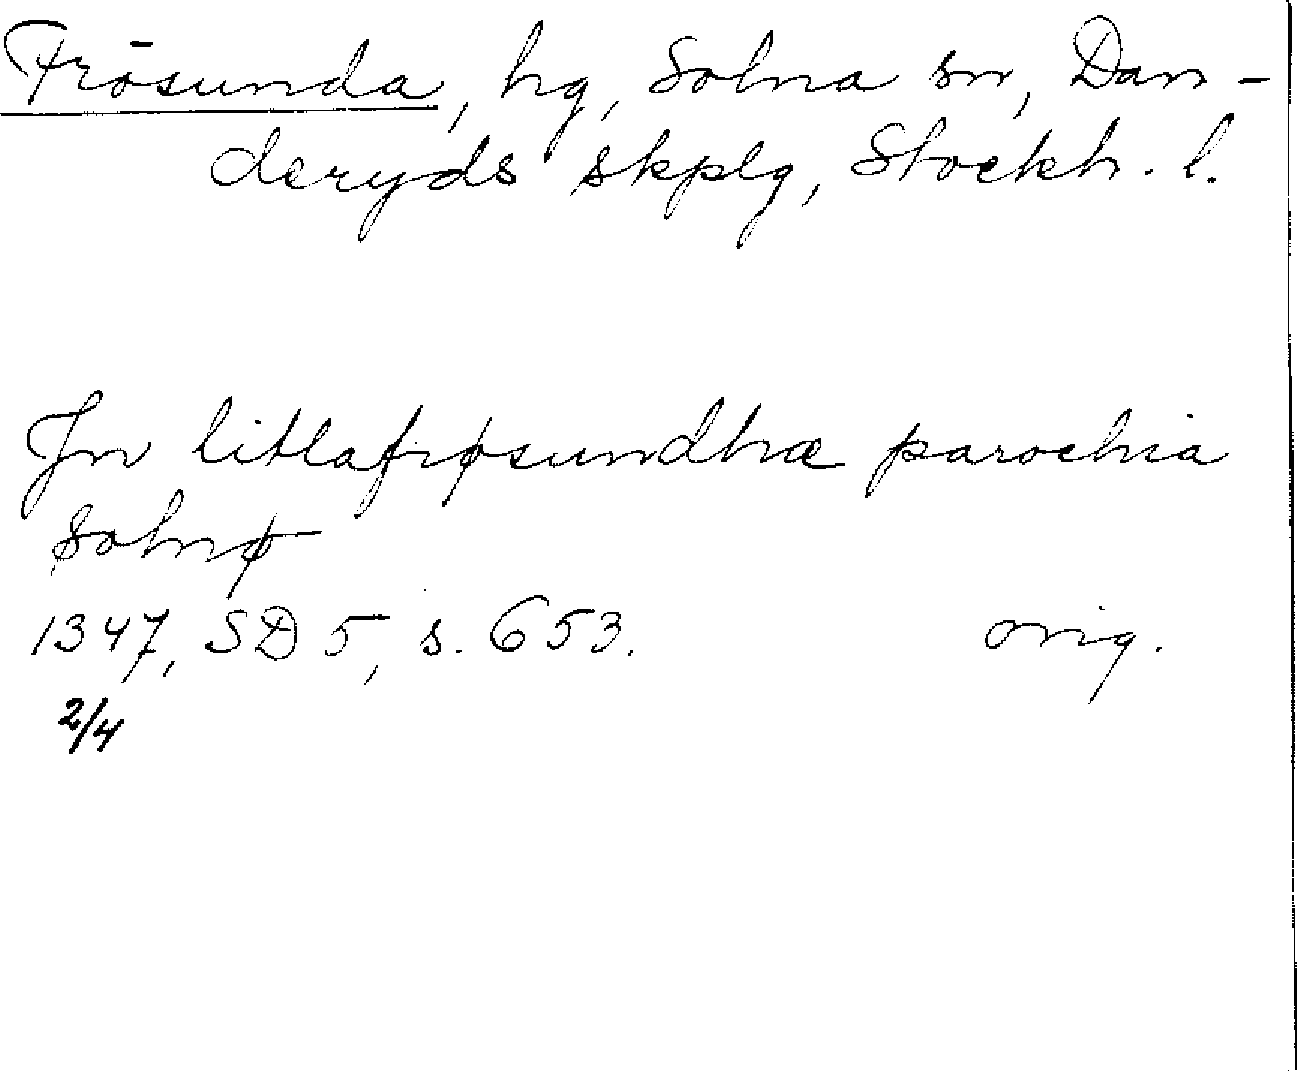 Frösunda, hg, Solna sn, Dan-
deryds skplg, Stockh. l.
Jn litlafrøsundhæ parochia
Solnø
1347, SD 5, s. 653. orig.
2/4